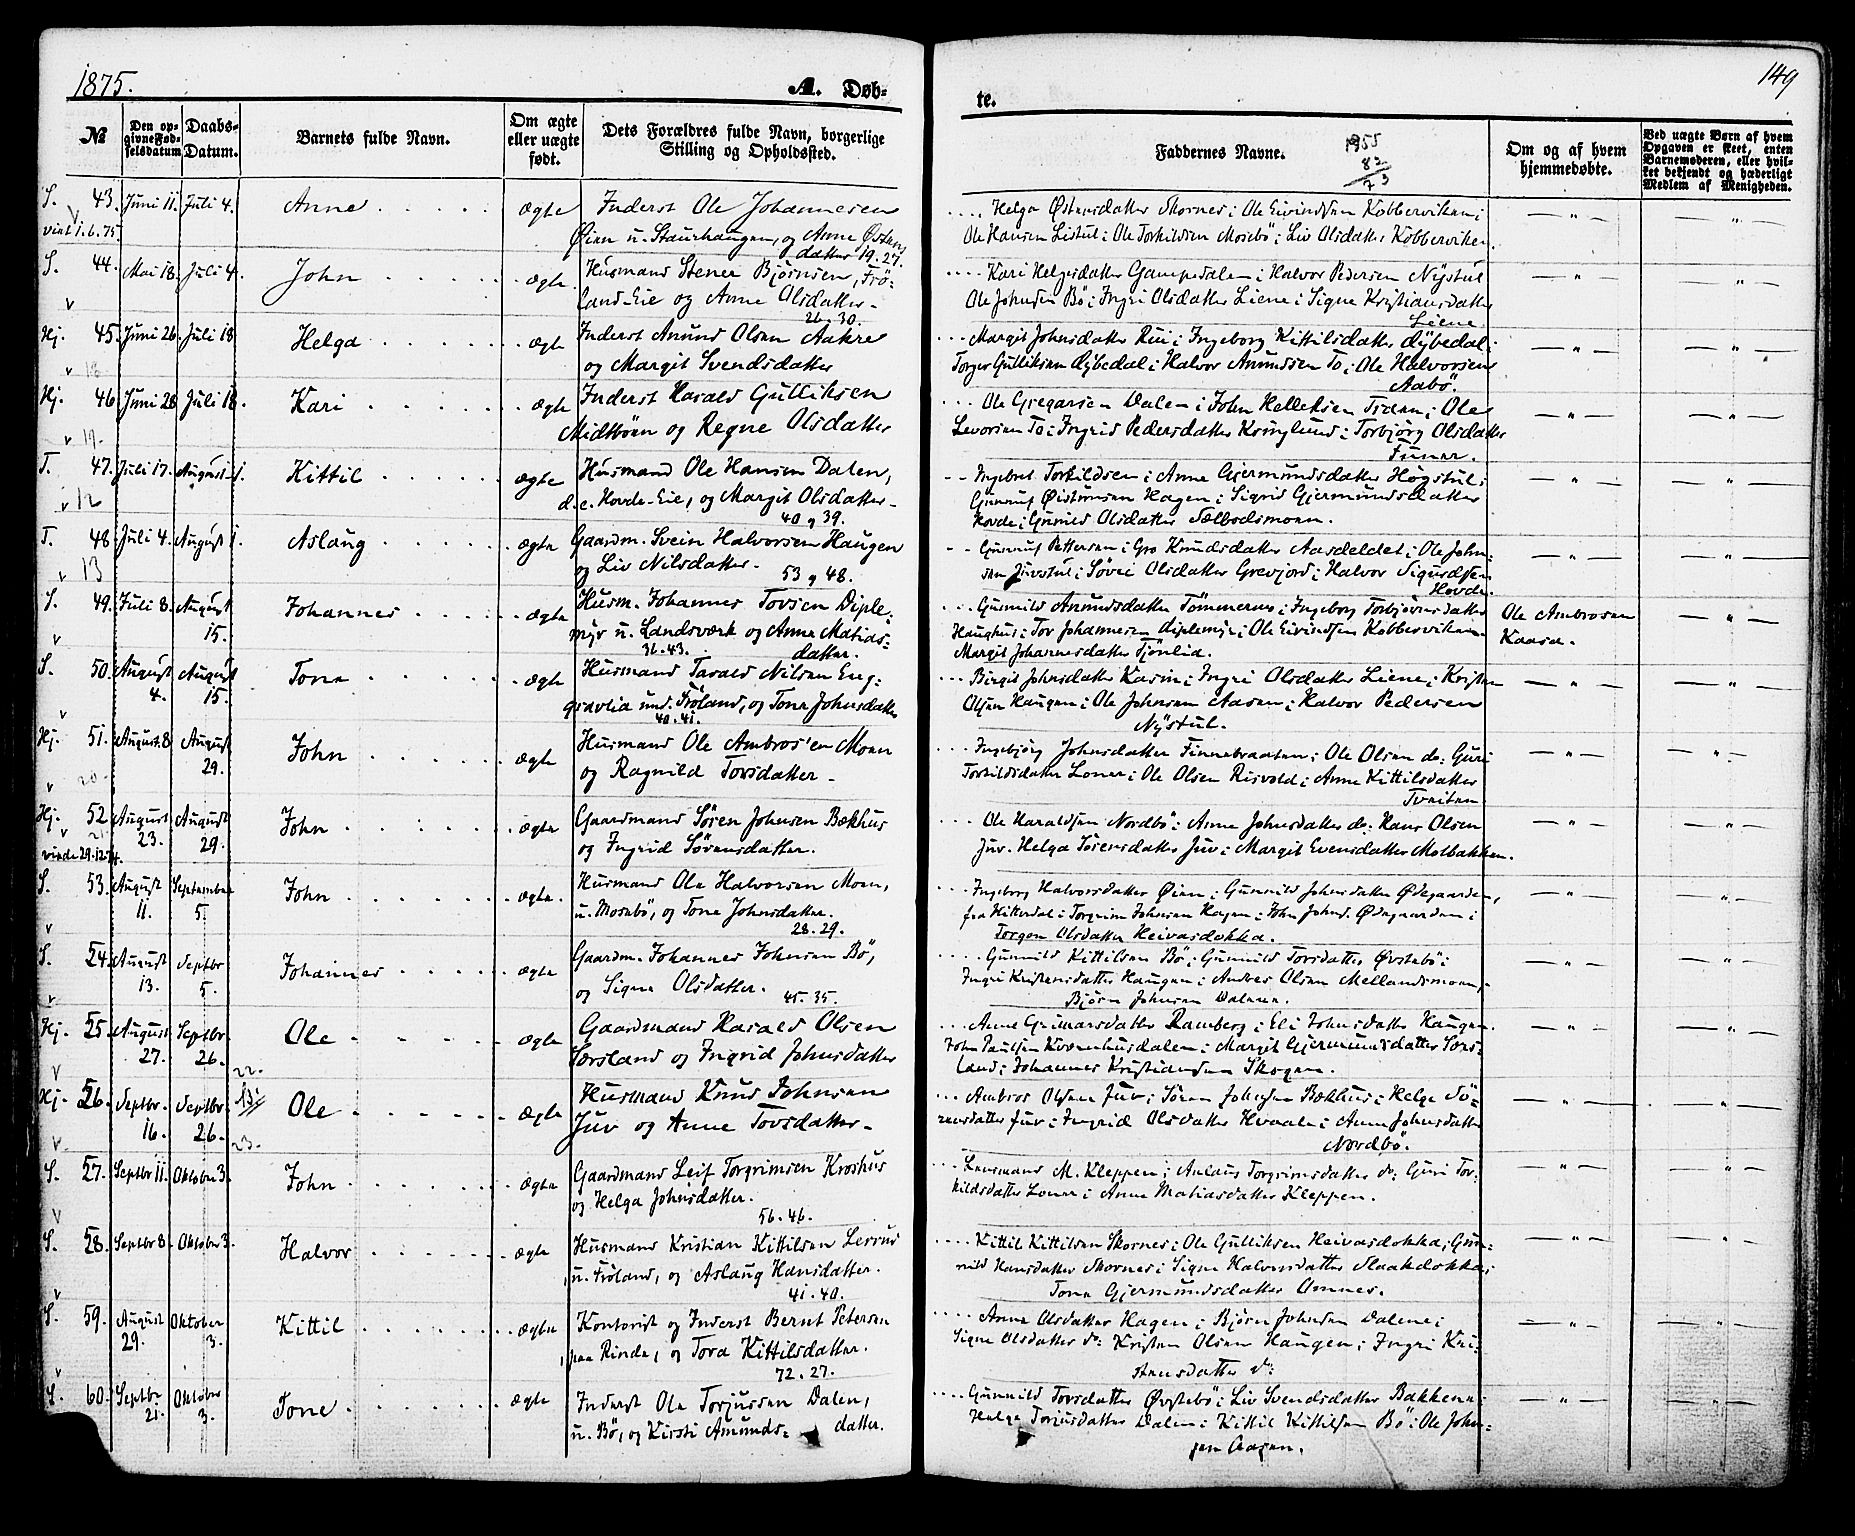 1875.
A. Døb-
te.
149
№
Den op-
givne Fød-
selsdatum
Daabs-
Datum.
Barnets fulde Navn.
Om ægte
eller uægte
født.
Dets Forældres fulde Navn, borgerlige
Stilling og Opholdssted.
Faddernes Navne.
1955
82
73
Om og af hvem
hjemmedøbte.
Ved uægte Børn af hvem
Opgaven er skeet, enten
Barnemoderen, eller hvil-
ket bekjendt og hæderligt
Medlem af Menigheden.
S. 43. Juni 11. Juli 4. Anne ægte Inderst Ole Johannesen
Øien u. Staurhaugen, og Anne Østens
datter 19. 27.
Helga Østensdatter Skornes; Ole Eivindsen Kobberviken;
Ole Hansen Listul; Ole Torkildsen Mosebö; Liv Olsdatter Kobberviken.
S. 44. Mai 18. Juli 4. John ægte Husmand Stener Bjørnsen, Frö-
land-Eie og Anne Olsdatter-
26. 30.
Kari Helgesdatter Gampedalen; Halvor Pedersen Nystul
Ole Johnsen Bö; Ingri Olsdatter Liene; Signe Kristiansdatter
Liene
Hj. 45. Juni 26 Juli 18. Helga ægte Inderst Anund Olsen Aakre
og Margit Svendsdatter
Margit Johnsdatter Rui; Ingeborg Kittilsdatter Dybedal;
Torger Gulliksen Dybedal; Halvor Anundsen To; Ole Halvorsen
Aabö.
18
Hj. 46 Juni 28 Juli 18. Kari ægte Inderst Harald Gulliksen
Midtböen og Regne Olsdatter
Ole Gregarsen Dalen; John Helleksen Tiden; Ole
Levorsen To; Ingrid Pedersdatter Kringlund; Torbjörg Olsdatter
19.
T. 47. Juli 17. August 1. Kittil ægte Husmand Ole Hansen Dalen,
d. e. Hovde-Eie, og Margit Olsdatter-
40 og 39.
Ingebret Torkildsen; Anne Gjermundsdatter Högstul;
Gunnuf Øistensen Hagen; Sigrid Gjermundsdatter
Hovde; Gunild Olsdatter Sælbodsmoen.
12
T. 48 Juli 4. August 1. Aslaug ægte Gaardm. Svein Halvorsen Haugen
og Liv Nilsdatter. 53 og 48.
Gunnuf Pettersen; Gro Knudsdatter Aasdeldet; Ole John-
sen Juvstul; Søvei Olsdatter Grevjord; Halvor Sigurdsen
Hovde.
13
S. 49. Juli 8. August
15.
Johannes ægte Husm. Johannes Tovsen Diple-
myr u. Landsverk og Anne Matias-
datter.
36. 43.
Gunnild Anundsdatter Tömmernes; Ingeborg Torbjörnsdatter
Haughus; Tov Johannesen Diplemyr; Ole Eivindsen Kobberviken
Margit Johannesdatter Tjönlid.
Ole Ambrosen
Kaasa.
S. 50. August
4.
August
15.
Tone ægte Husmand Tarald Nilsen Eng-
gravlia und. Fröland, og Tone Johnsdatter
40. 41.
Birgit Johnsdatter Kasin; Ingri Olsdatter Liene; Kristen
Olsen Haugen; Ole Johnsen Aasen; Halvor Pedersen
Nystul.
Hj. 51. August. 8 August
29.
John ægte Husmand Ole Ambros'en Moen
og Ragnild Torsdatter-
Ingebjörg Johnsdatter Finnebraaten; Ole Olsen do: Guri
Torkildsdatter Loner; Ole Olsen Risvold; Anne Kittilsdatter
Tveiten
20.
Hj. 52 August
23.
August
29.
John ægte Gaardmand Sören Johnsen Bækhus
og Ingrid Sörensdatter.
Ole Haraldsen Nordbö; Anne Johnsdatter do: Hans Olsen
Juv. Helga Sörensdatter Juv; Margit Evensdatter Molbakken.
S. 53. August
11.
September
5.
John ægte Husmand Ole Halvorsen Moen,
u. Mosebö, og Tone Johnsdatter.
28. 29.
Ingeborg Halvorsdatter Øien; Gunnild Johnsdatter Ødegaarden,
fra Hitterdal; Torgrim Johnsen Hagen; John Johns. Ødegaarden;
Torgon Olsdatter Heivasdokka.
S. 54. August
13.
Septbr
5.
Johannes ægte Gaardm. Johannes Johnsen Bö,
og Signe Olsdatter.
45. 35.
Gunnild Kittilsen Bö; Gunnild Torsdatter Øvstebö;
Ingri Kristensdatter Haugen; Andres Olsen Mellandsmoen,
Björn Johnsen Dalene.
Hj. 55 August
27.
Septbr
26.
Ole ægte Gaardmand Harald Olsen
Sorsland og Ingrid Johnsdatter
Anne Grimarsdatter Ramberg; Eli Johnsdatter Haugen
John Paulsen Kvernhusdalen; Margit Gjermundsdatter Sors-
land; Johannes Kristiansen Skogen.
22.
Hj. 56. Septbr.
16.
Septbr
26.
Ole ægte Husmand Knud Johnsen
Juv og Anne Tovsdatter-
Ambros Olsen Juv; Sören Johnsen Bækhus; Helge Sö-
rensdatter Juv; Ingrid Olsdatter Hvaale; Anne Johnsdatter
Nordbö.
23.
S. 57. Septbr 11. Oktober 3. John ægte Gaardmand Leif Torgrimsen Kroshus
og Helga Johnsdatter.
56. 46.
Lensmand M. Kleppen; Aslaug Torgrimsdatter do: Guri Tor-
kildsdatter Loner; Anne Matiasdatter Kleppen.
S. 58. Septbr 8. Oktober 3. Halvor ægte Husmand Kristian Kittilsen Lerrud
u. Fröland, og Aslaug Hansdatter.
41. 40.
Kittil Kittilsen Skornes; Ole Gulliksen Heivasdokka; Gun-
nild Hansdatter Skornes; Signe Halvorsdatter Slaakdokka;
Tone Gjermundsdatter Omnes.
S. 59. August
29.
Oktober
3.
Kittil ægte Kontorist og Inderst Bernt Petersen
paa Rinde, og Tora Kittilsdatter.
72. 27.
Anne Olsdatter Hagen; Björn Johnsen Dalene;
Signe Olsdatter do: Kristen Olsen Haugen; Ingri Kri-
stensdatter do:
S. 60. Septbr
21.
Oktober
3.
Tone ægte Inderst Ole Torjussen Dalen,
u. Bö, og Kirsti Amunds- datter.
Gunnild Torsdatter Øvstebö; Liv Svendsdatter Bakkene;
Helge Torjusdatter Dalen; Kittil Kittilsen Bö; Ole John-
sen Aasen.